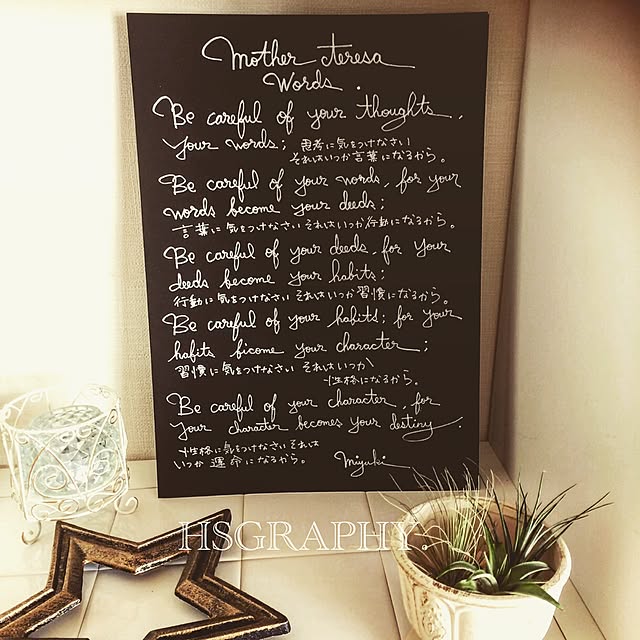 Mother teresa
Words.
Be careful of your thoughts,
your words; 思考に気をつけなさい
それはいつか言葉になるから。
Be careful of your words, for your
words become your deeds;
言葉に気をつけなさいそれはいつか行動になるから。
Be careful of your deeds, for your
deeds become your habits;
行動に気をつけなさい それはいつか習慣になるから。
Be careful of your habits; for your
habits bicome your character;
習慣に気をつけなさい それはいつか
性格になるから。
Be careful of your character, for
your character becomes your destiny.
性格に気をつけなさい それは
いつか運命になるから。 Miyuki
HSGRAPHY.